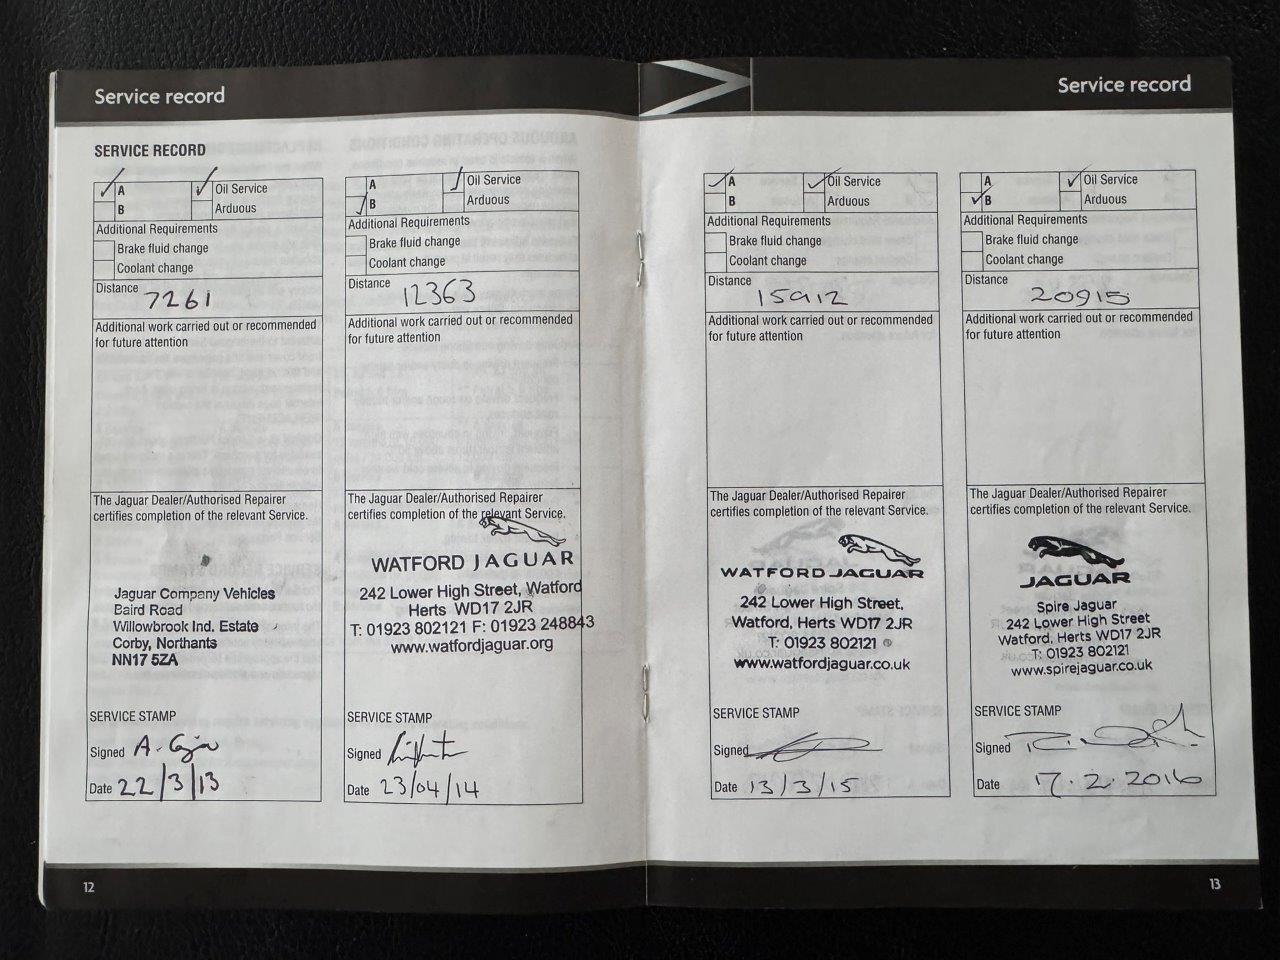 Service record
SERVICE RECORD
A
Oil Service
B
Arduous
Additional Requirements
Brake fluid change
Coolant change
Distance 7261
Additional work carried out or recommended
for future attention
The Jaguar Dealer/Authorised Repairer
certifies completion of the relevant Service.
Jaguar Company Vehicles
Baird Road
Willowbrook Ind. Estate
Corby, Northants
NN17 5ZA
SERVICE STAMP
Signed
Date 22/3/13
A
Oil Service
B
Arduous
Additional Requirements
Brake fluid change
Coolant change
Distance 12363
Additional work carried out or recommended
for future attention
The Jaguar Dealer/Authorised Repairer
certifies completion of the relevant Service.
WATFORD JAGUAR
242 Lower High Street, Watford
Herts WD17 2JR
T: 01923 802121 F: 01923 248843
www.watfordjaguar.org
SERVICE STAMP
Signed
Date 23/04/14
12
Service record
A
Oil Service
B
Arduous
Additional Requirements
Brake fluid change
Coolant change
Distance 15912
Additional work carried out or recommended
for future attention
The Jaguar Dealer/Authorised Repairer
certifies completion of the relevant Service.
WATFORD JAGUAR
242 Lower High Street,
Watford, Herts WD17 2JR
T: 01923 802121
www.watfordjaguar.co.uk
SERVICE STAMP
Signed
Date 13/3/15
A
Oil Service
B
Arduous
Additional Requirements
Brake fluid change
Coolant change
Distance 20915
Additional work carried out or recommended
for future attention
The Jaguar Dealer/Authorised Repairer
certifies completion of the relevant Service.
JAGUAR
Spire Jaguar
242 Lower High Street
Watford, Herts WD17 2JR
T: 01923 802121
www.spirejaguar.co.uk
SERVICE STAMP
Signed
Date 17.2.2016
13